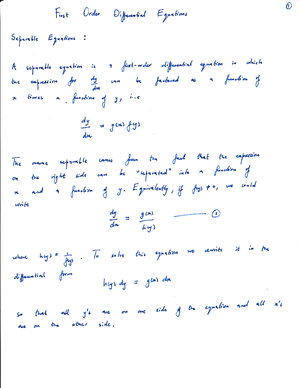 First Order Differential Equations
①
Separable Equations :
A separable equation is a first-order differential equation in which
the expression for dy/dx can be factored as a function of
x times a function of y, i.e
dy/dx = g(x) f(y)
The name separable comes from the fact that the expression
on the right side can be "separated" into a function of
x and a function of y. Equivalently, if f(y) ≠ 0, we could
write
dy/dx = g(x)/h(y) ——— ①
where h(y) = 1/f(y). To solve this equation we rewrite it in the
differential form
h(y) dy = g(x) dx
so that all y's are on one side of the equation and all x's
are on the other side.